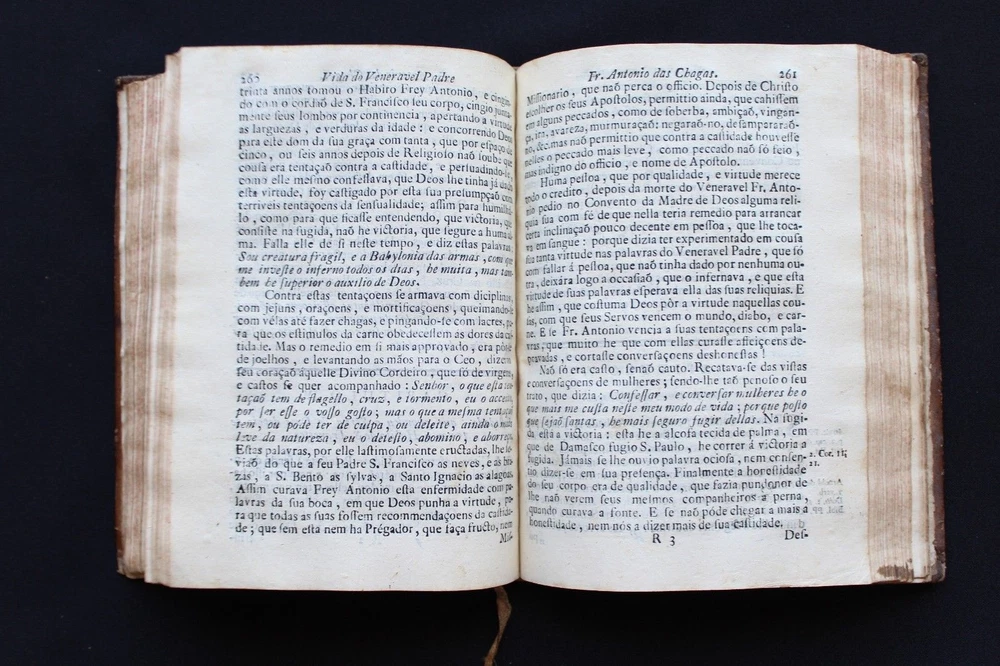 260 Vida do Veneravel Padre
trinta annos tomou o Habito Frey Antonio, e cingin-
do com o cordaõ de S. Francisco seu corpo, cingio junta-
mente seus lombos por continencia, apertando a virtude
as larguezas, e verduras da idade: e concorrendo Deos
para este dom da sua graça com tanta, que por espaço de
cinco, ou seis annos depois de Religioso naõ soube que
cousa era tentaçaõ contra a castidade, e persuadindo-se,
como elle mesmo confessava, que Deos lhe tinha já dado
esta virtude, foy castigado por esta sua presumpçaõ com
terriveis tentaçoens da sensualidade; assim para humilhá-
lo, como para que ficasse entendendo, que victoria, que
consiste na fugida, naõ he victoria, que segure a huma al-
ma. Falla elle de si neste tempo, e diz estas palavras:
Sou creatura fragil, e a Babylonia das armas, com que
me investe o infermo todos os dias, he muita, mas tam-
bem he superior o auxilio de Deos.
Contra estas tentaçoens se armava com diciplinas,
com jejuns, oraçoens, e mortificaçoens, queimando-se
com vélas até fazer chagas, e pingando-se com lacres, pa-
ra que os estimulos da carne obedecessem as dores da cas-
tidade. Mas o remedio em si mais approvado, era pôr-se
de joelhos, e levantando as mãos para o Ceo, dizer em
seu coraçaõ áquelle Divino Cordeiro, que só de virgens,
e castos se quer acompanhado: Senhor, o que esta ten-
taçaõ tem de flagello, cruz, e tormento, eu o acceito,
por ser esse o vosso gosto; mas o que a mesma tentaçaõ
tem, ou póde ter de culpa, ou deleite, ainda o mais
leve da natureza, eu o detesto, abomino, e aborreço.
Estas palavras, por elle lastimosamente eructadas, lhe ser-
viaõ do que a seu Padre S. Francisco as neves, e as bra-
zas, a S. Bento as sylvas, a Santo Ignacio as alagoas.
Assim curava Frey Antonio esta enfermidade com pa-
lavras da sua boca, em que Deos punha a virtude, pa-
ra que todas as suas fossem recommendaçoens da castida-
de; que sem esta nem ha Prégador, que faça fructo, nem
Mis-
Fr. Antonio das Chagas. 261
Missionario, que naõ perca o officio. Depois de Christo
escolher os seus Apostolos, permittio ainda, que cahissem
em alguns peccados, como de soberba, ambiçaõ, vingan-
ça, ira, avareza, murmuraçaõ: negaraõ-no, desampararaõ-
no, &c. mas naõ permittio que contra a castidade houvesse
nelles o peccado mais leve, como peccado naõ só feio,
mas indigno do officio, e nome de Apostolo.
Huma pessoa, que por qualidade, e virtude merece
todo o credito, depois da morte do Veneravel Fr. Anto-
nio pedio no Convento da Madre de Deos alguma reli-
quia sua com fé de que nella teria remedio para arrancar
certa inclinaçaõ pouco decente em pessoa, que lhe toca-
va em sangue: porque dizia ter experimentado em cousa
sua tanta virtude nas palavras do Veneravel Padre, que só
com fallar á pessoa, que naõ tinha dado por nenhuma ou-
tra, deixára logo a occasiaõ, que o infernava, e que esta
virtude de suas palavras esperava ella das suas reliquias. E
he assim, que costuma Deos pôr a virtude naquellas cou-
sas, com que seus Servos vencem o mundo, diabo, e car-
ne. E se Fr. Antonio vencia a suas tentaçoens com pala-
vras, que muito he que com ellas curasse affeiçoens de-
pravadas, e cortasse conversaçoens deshonestas!
Naõ só era casto, senaõ cauto. Recatava-se das vistas
e conversaçoens de mulheres; sendo-lhe taõ penoso o seu
trato, que dizia: Confessar, e conversar mulheres he o
que mais me custa neste meu modo de vida; porque posto
que sejaõ santas, he mais seguro fugir dellas. Na fugi-
da está a victoria: esta he a alcofa tecida de palma, em
que de Damasco fugio S. Paulo, he correr á victoria a
fugida. Jámais se lhe ouvio palavra ociosa, nem consen-
2. Cor. 11.
tio dizer-se em sua presença. Finalmente a honestidade
do seu corpo era de qualidade, que fazia pundonor de
lhe naõ verem seus mesmos companheiros a perna,
quando curava a fonte. E se naõ póde chegar a mais a
honestidade, nem nós a dizer mais de sua castidade.
R 3 Des-